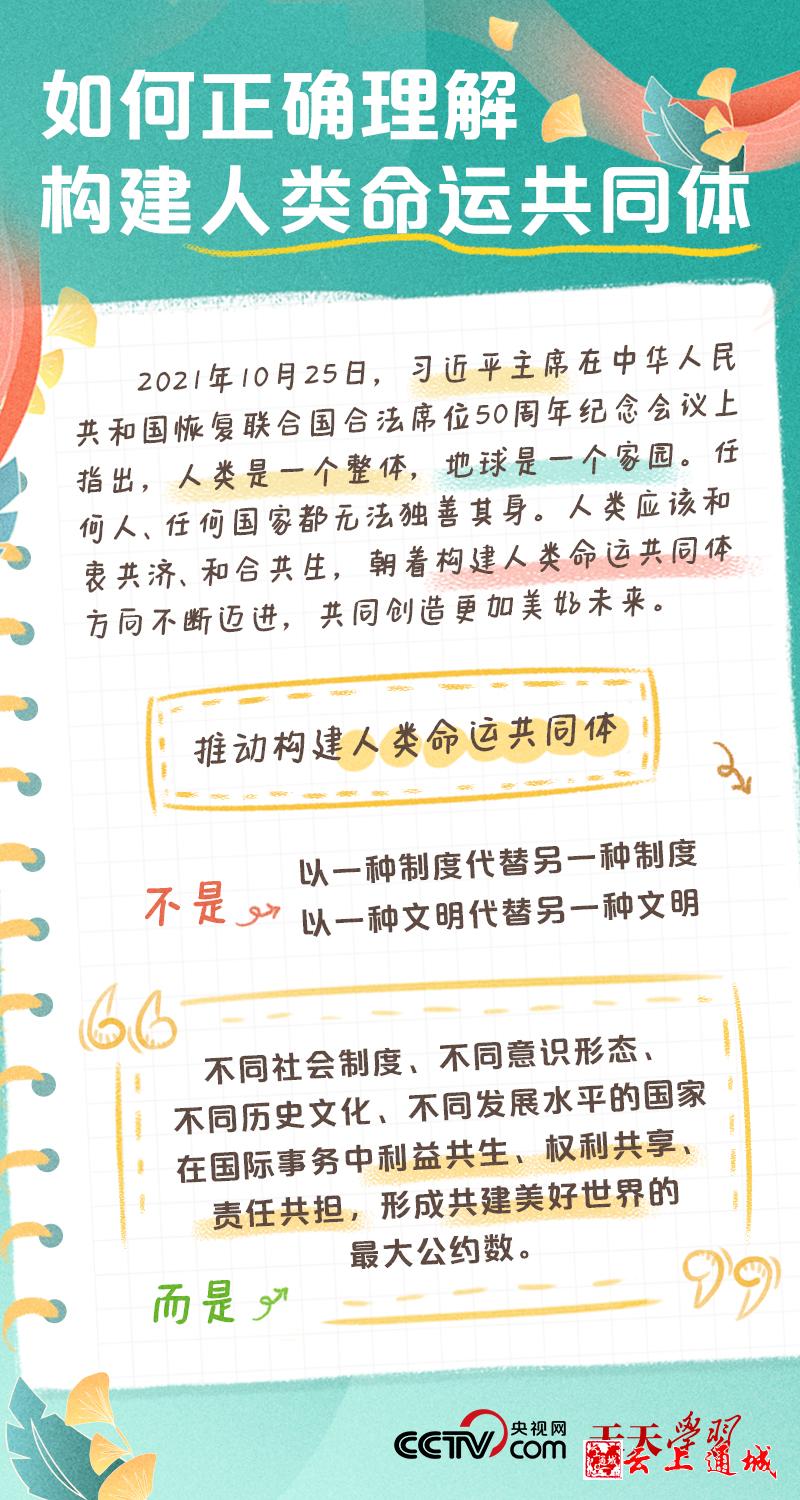 如何正确理解
构建人类命运共同体
2021年10月25日，习近平主席在中华人民
共和国恢复联合国合法席位50周年纪念会议上
指出，人类是一个整体，地球是一个家园。任
何人、任何国家都无法独善其身。人类应该和
衷共济、和合共生，朝着构建人类命运共同体
方向不断迈进，共同创造更加美好未来。
推动构建人类命运共同体
不是
以一种制度代替另一种制度
以一种文明代替另一种文明
“
不同社会制度、不同意识形态、
不同历史文化、不同发展水平的国家
在国际事务中利益共生、权利共享、
责任共担，形成共建美好世界的
最大公约数。
”
而是
CCTV.com 央视网
天天学习
云上通城